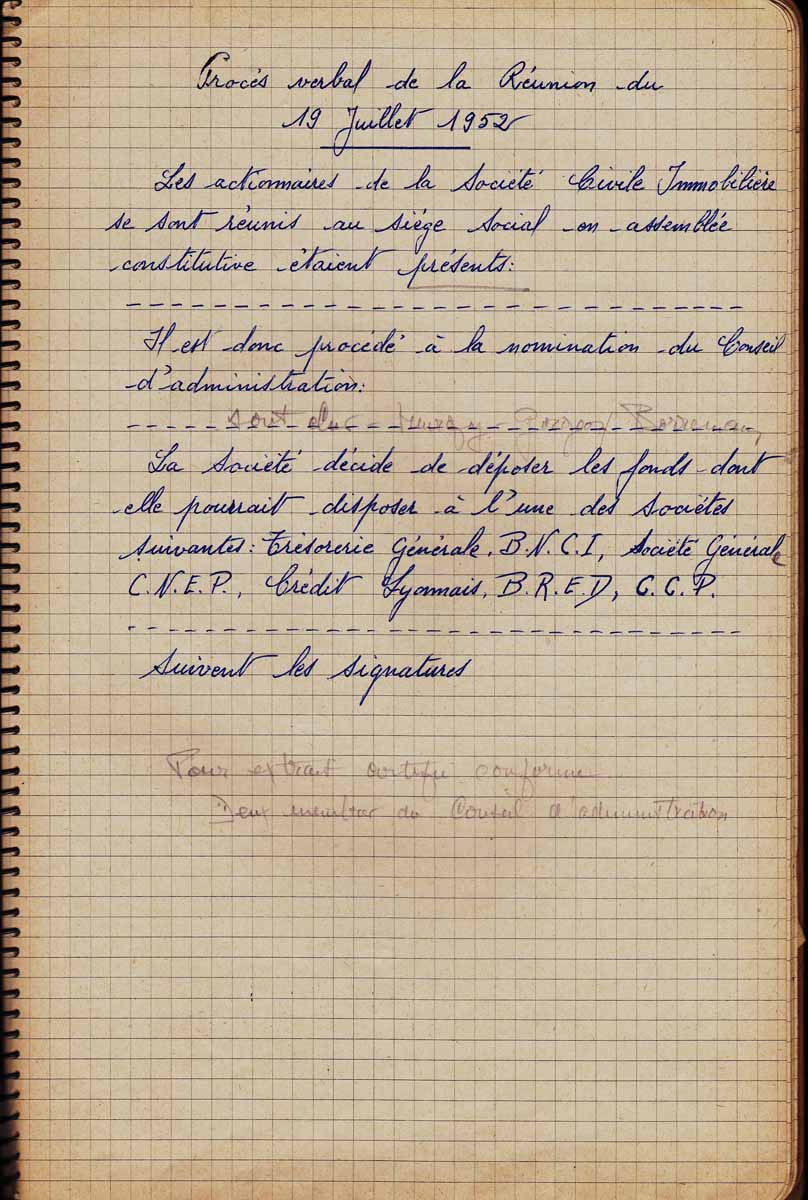 Procés verbal de la Réunion du
19 Juillet 1952
Les actionnaires de la Société Civile Immobilière
se sont réunis au siége social en assemblée
constitutive étaient présents:
Il est donc procédé à la nomination du Conseil
d'administration:
sont
La Société décide de déposer les fonds dont
elle pourrait disposer à l'une des Sociétés
suivantes: Trésorerie Générale, B.N.C.I, Société Générale
C.N.E.P., Crédit Lyonnais, B.R.E.D, C.C.P.
Suivent les signatures
Pour extrait certifié conforme
Deux membres du Conseil d'administration